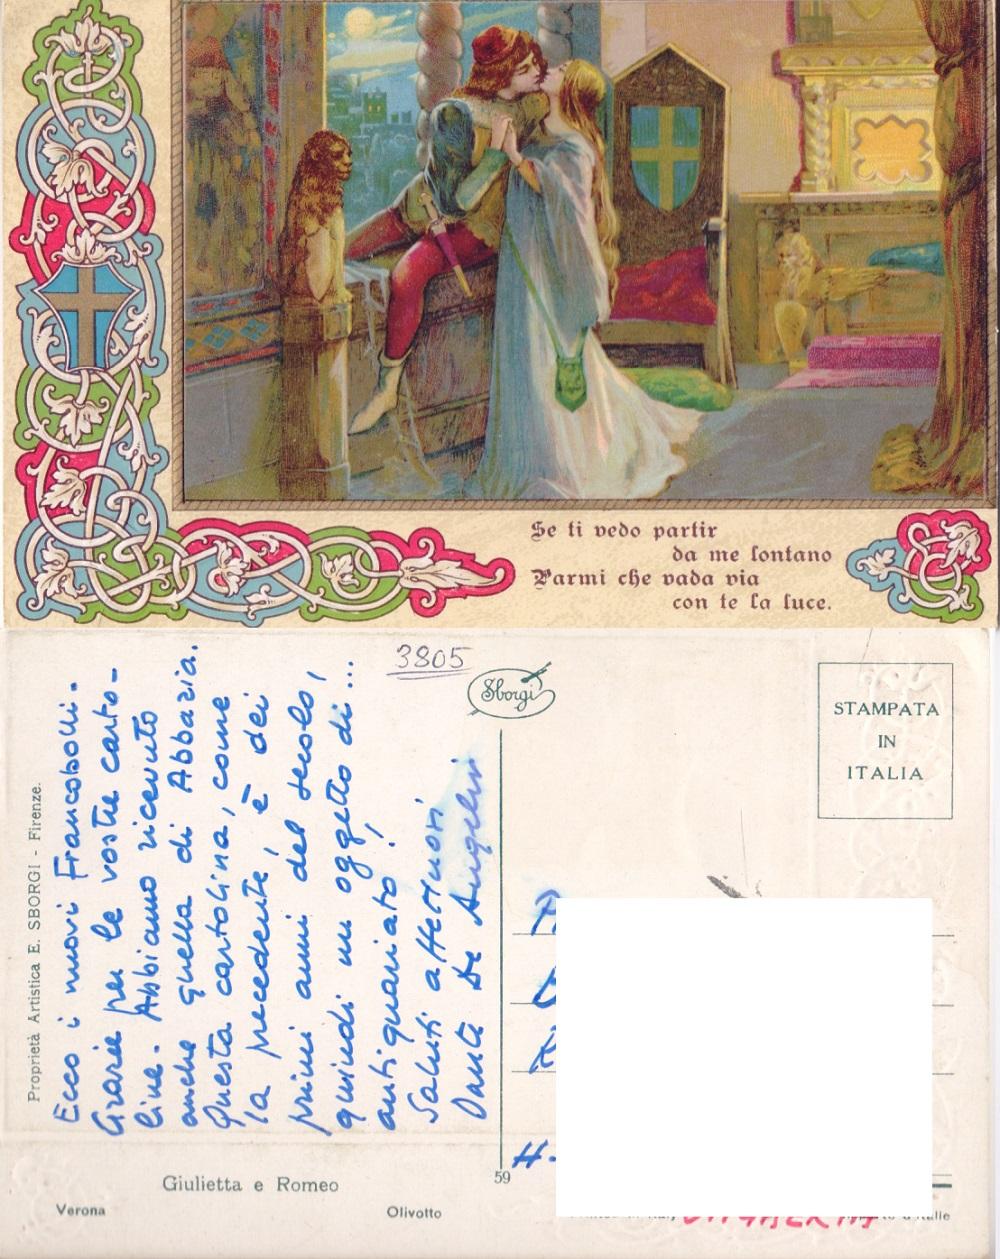 Se ti vedo partir
da me lontano
Parmi che vada via
con te la luce.
3805
Sborgi
STAMPATA
IN
ITALIA
Proprietà Artistica E. SBORGI - Firenze.
Ecco i nuovi Francobolli.
Grazie per le vostre carto-
line. Abbiamo ricevuto
anche quella di Abbazia.
Questa cartolina, come
la precedente, è dei
primi anni del secolo,
quindi un oggetto di...
antiquariato!
Saluti affettuosi,
Dante De Angelis
H.
59
Giulietta e Romeo
Verona
Olivotto